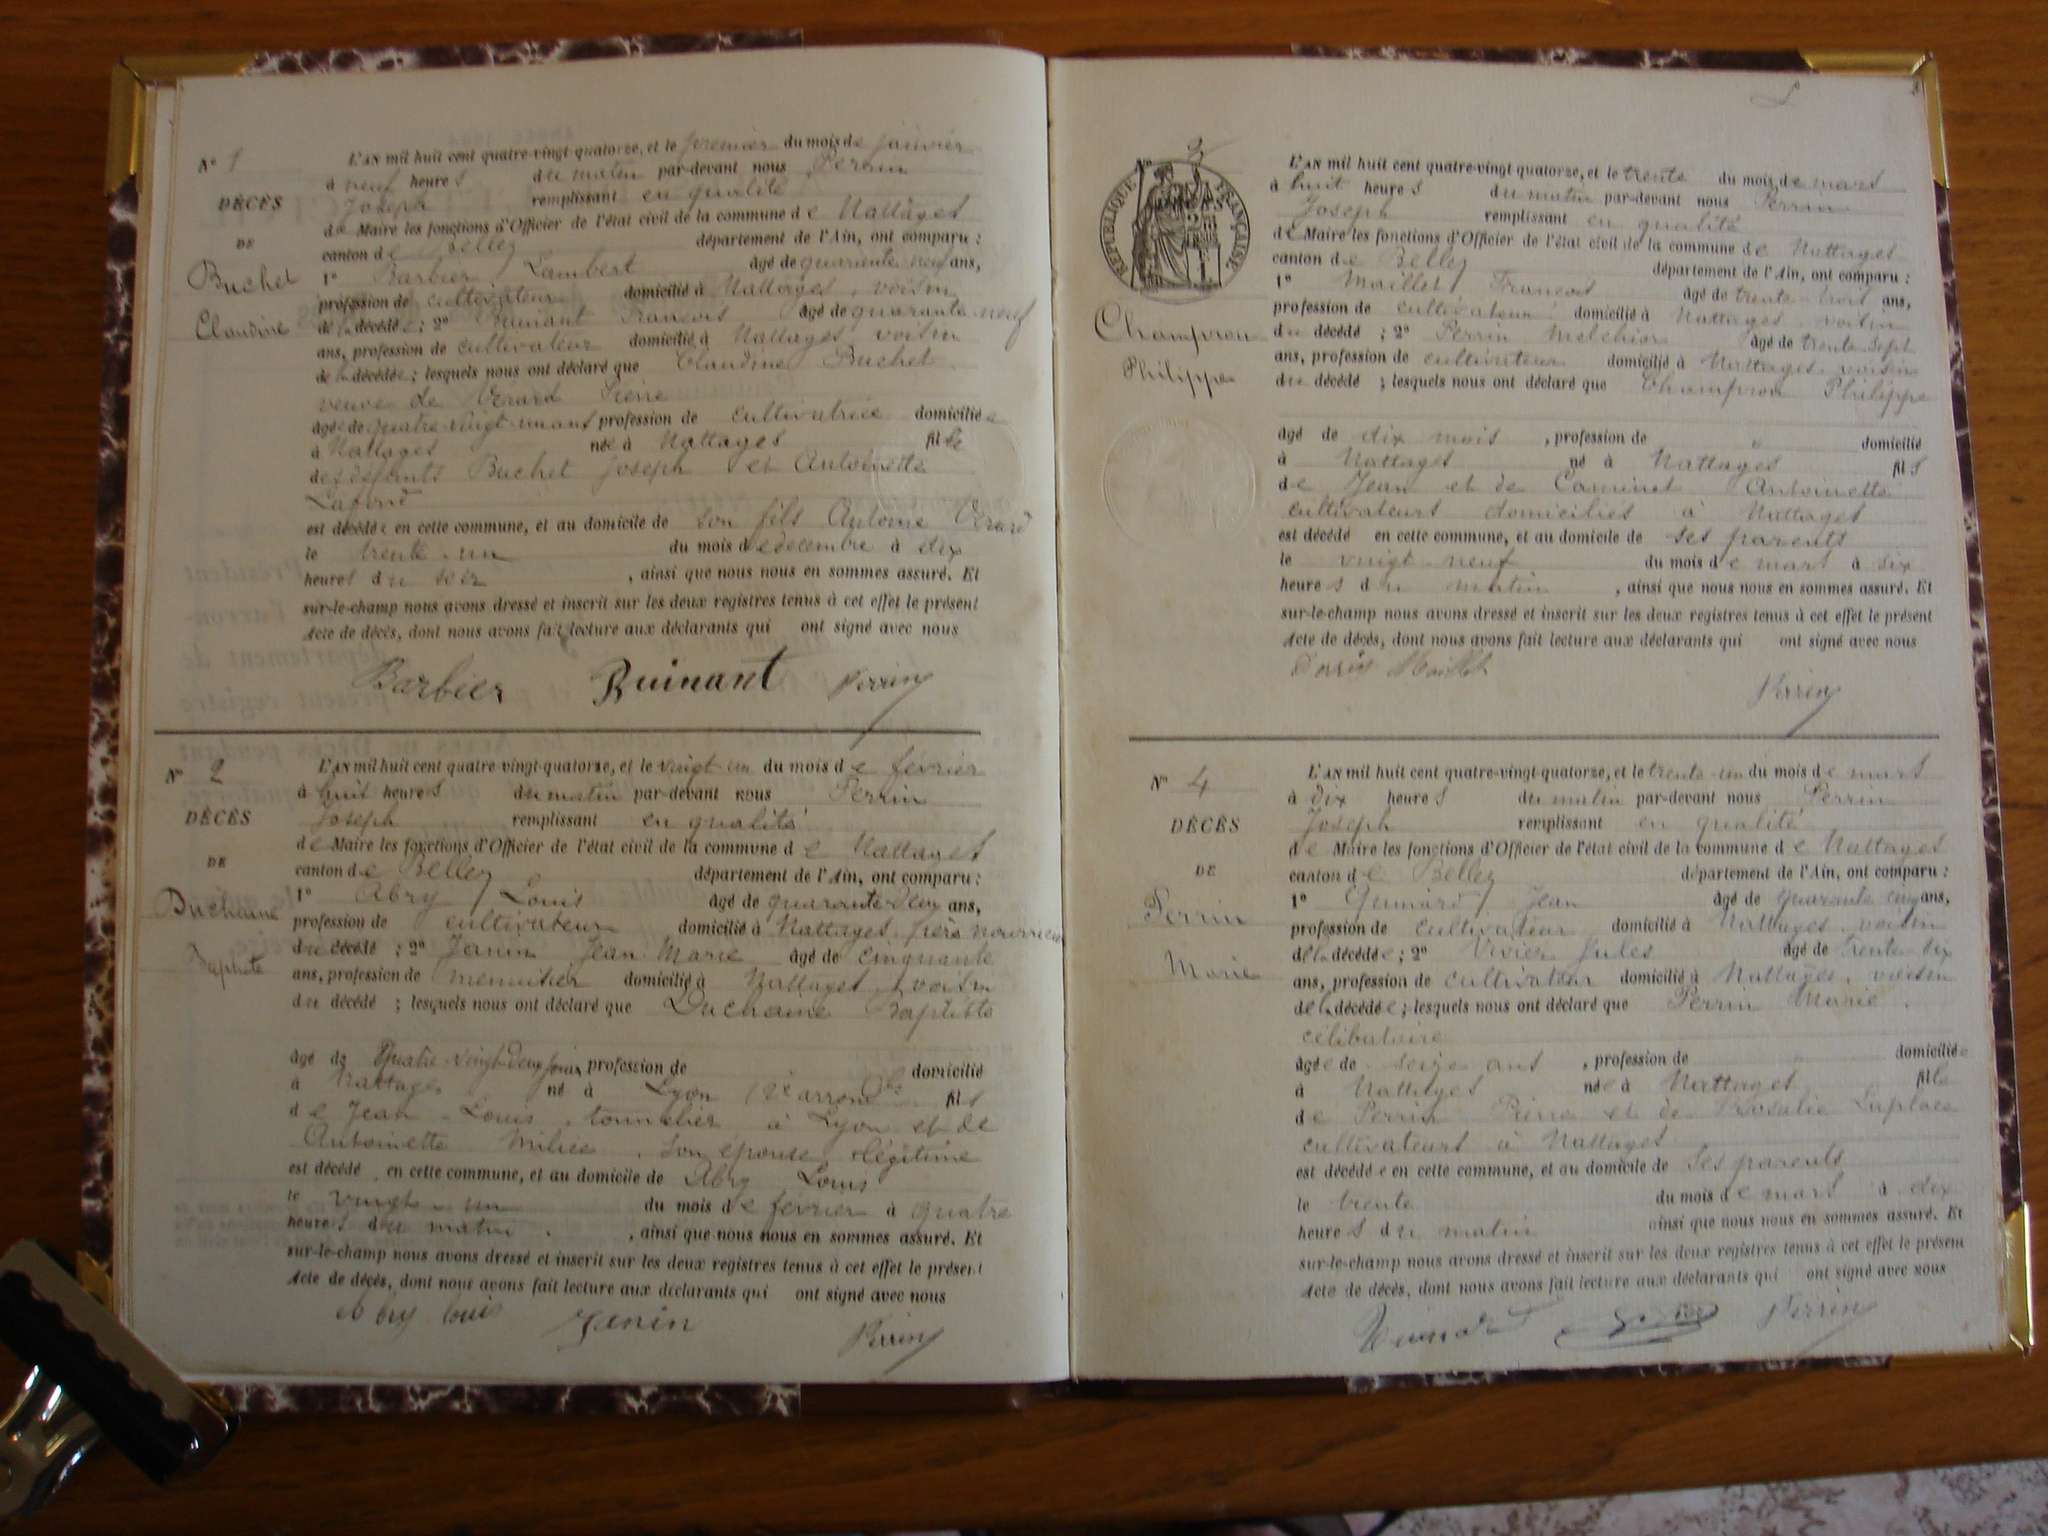 N° 1
DÉCÈS
DE
Buchet
Claudine
L'AN mil huit cent quatre-vingt quatorze, et le premier du mois de janvier
à neuf heures du matin par-devant nous Perrin
Joseph remplissant en qualité
de Maire les fonctions d'Officier de l'état civil de la commune de Nattages
canton de Belley département de l'Ain, ont comparu :
1° Barbier Lambert âgé de quarante neuf ans,
profession de cultivateur domicilié à Nattages, voisin
de la décédée ; 2° Ruinant François âgé de quarante neuf
ans, profession de cultivateur domicilié à Nattages voisin
de la décédée ; lesquels nous ont déclaré que Claudine Buchet
veuve de Vérard Pierre
âgée de quatre-vingt-un ans profession de cultivatrice domiciliée
à Nattages née à Nattages fille
des défunts Buchet Joseph et Antoinette
Lafond
est décédée en cette commune, et au domicile de son fils Antoine Vérard
le trente-un du mois de décembre à dix
heures du soir , ainsi que nous nous en sommes assuré. Et
sur-le-champ nous avons dressé et inscrit sur les deux registres tenus à cet effet le présent
Acte de décès, dont nous avons fait lecture aux déclarants qui ont signé avec nous
Barbier Ruinant Perrin
N° 2
DÉCÈS
DE
Duchaine
Baptiste
L'AN mil huit cent quatre-vingt-quatorze, et le vingt-un du mois de février
à huit heures du matin par-devant nous Perrin
Joseph remplissant en qualité
de Maire les fonctions d'Officier de l'état civil de la commune de Nattages
canton de Belley département de l'Ain, ont comparu :
1° Abry Louis âgé de quarante deux ans,
profession de cultivateur domicilié à Nattages, père nourricier
du décédé ; 2° Janin Jean Marie âgé de cinquante
ans, profession de menuisier domicilié à Nattages, voisin
du décédé ; lesquels nous ont déclaré que Duchaine Baptiste
âgé de quatre-vingt-deux jours profession de domicilié
à Nattages né à Lyon arrond fils
de Jean-Louis, tonnelier à Lyon et de
Antoinette son épouse légitime
est décédé en cette commune, et au domicile de Abry Louis
le vingt-un du mois de février à quatre
heures du matin , ainsi que nous nous en sommes assuré. Et
sur-le-champ nous avons dressé et inscrit sur les deux registres tenus à cet effet le présent
Acte de décès, dont nous avons fait lecture aux déclarants qui ont signé avec nous
Abry Louis Janin Perrin
N° 3
RÉPUBLIQUE FRANÇAISE
Champron
Philippe
L'AN mil huit cent quatre-vingt-quatorze, et le trente du mois de mars
à huit heures du matin par-devant nous Perrin
Joseph remplissant en qualité
de Maire les fonctions d'Officier de l'état civil de la commune de Nattages
canton de Belley département de l'Ain, ont comparu :
1° Maillet François âgé de trente-trois ans,
profession de cultivateur domicilié à Nattages, voisin
du décédé ; 2° Perrin Melchior âgé de trente sept
ans, profession de cultivateur domicilié à Nattages, voisin
du décédé ; lesquels nous ont déclaré que Champron Philippe
âgé de dix mois , profession de " domicilié
à Nattages né à Nattages fils
de Jean et de Antoinette
cultivateurs domiciliés à Nattages
est décédé en cette commune, et au domicile de ses parents
le vingt-neuf du mois de mars à six
heures du matin , ainsi que nous nous en sommes assuré. Et
sur-le-champ nous avons dressé et inscrit sur les deux registres tenus à cet effet le présent
Acte de décès, dont nous avons fait lecture aux déclarants qui ont signé avec nous
Perrin Maillet
Perrin
N° 4
DÉCÈS
DE
Perrin
Marie
L'AN mil huit cent quatre-vingt-quatorze, et le trente-un du mois de mars
à dix heures du matin par-devant nous Perrin
Joseph remplissant en qualité
de Maire les fonctions d'Officier de l'état civil de la commune de Nattages
canton de Belley département de l'Ain, ont comparu :
1° Jean âgé de quarante cinq ans,
profession de cultivateur domicilié à Nattages voisin
de la décédée ; 2° Vivier Jules âgé de trente six
ans, profession de cultivateur domicilié à Nattages, voisin
de la décédée ; lesquels nous ont déclaré que Perrin Marie,
célibataire
âgée de seize ans , profession de domiciliée
à Nattages née à Nattages fille
de Perrin Pierre et de Rosalie Laplace
cultivateurs à Nattages
est décédée en cette commune, et au domicile de ses parents
le trente du mois de mars à dix
heures du matin ainsi que nous nous en sommes assuré. Et
sur-le-champ nous avons dressé et inscrit sur les deux registres tenus à cet effet le présent
Acte de décès, dont nous avons fait lecture aux déclarants qui ont signé avec nous
Perrin